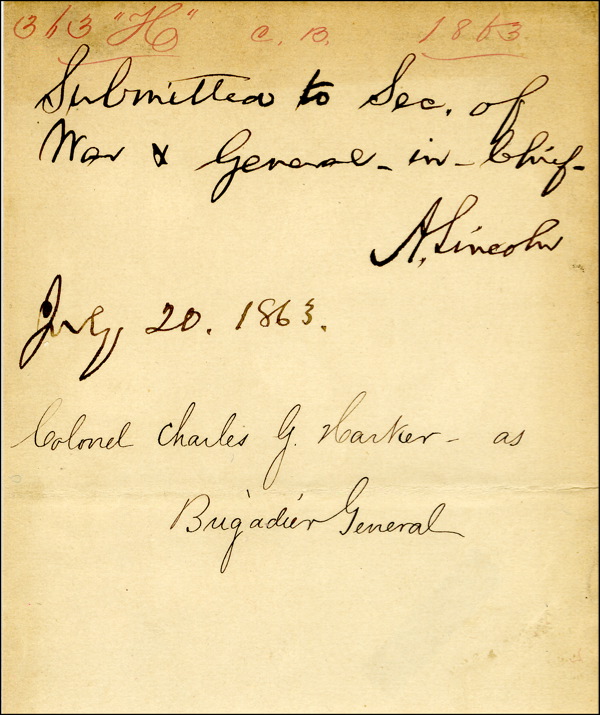 363 "H" C. B. 1863
Submitted to Sec. of
War & General-in-Chief-
A. Lincoln
July 20. 1863.
Colonel Charles G. Harker - as
Brigadier General